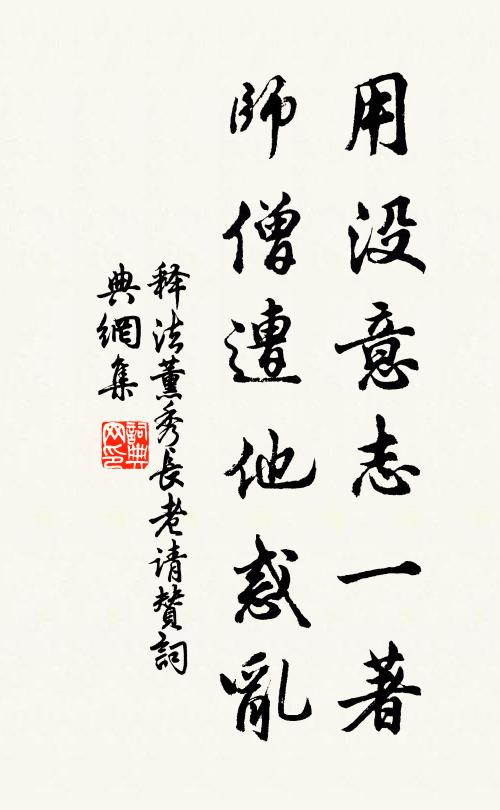 用没意志一著
師僧遭他惑亂
释法薰秀長老请赞詞
典網集
詞典网印